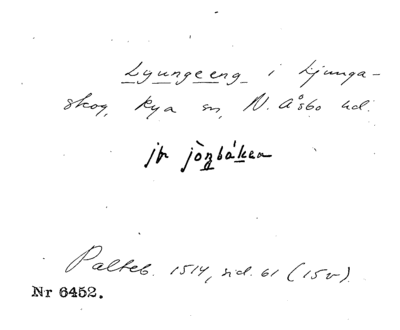 Lyungeeng i Ljunga-
skog, Rya sn, N. Åsbo hd.
jfr jöṉbáḵen
Palteb. 1514, sid. 61 (15v)
Nr 6452.